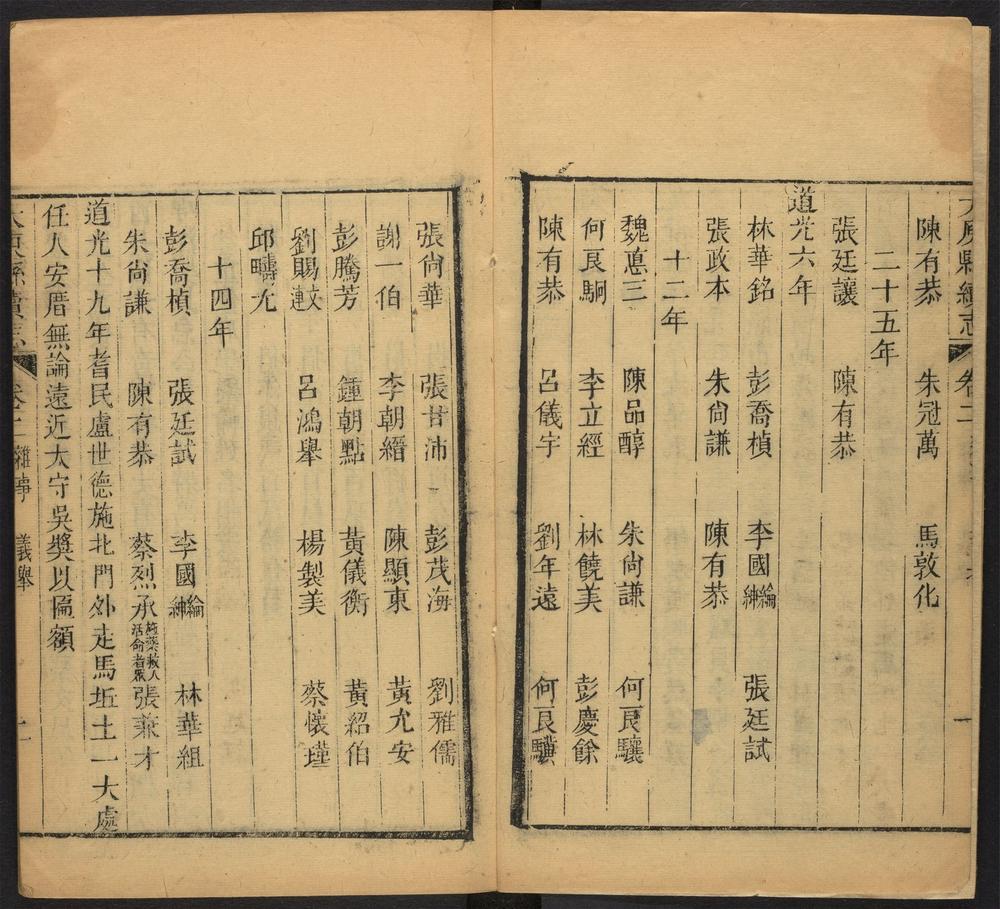 大庾縣續志 卷二
陳有恭 朱冠萬 馬敦化
二十五年
張廷讓 陳有恭
道光六年
林華銘 彭喬楨 李國綸紳 張廷試
張政本 朱尙謙 陳有恭
十二年
魏悳三 陳品醇 朱尙謙 何艮驤
何艮駉 李立經 林饒美 彭慶餘
陳有恭 呂儀宇 劉年遠 何艮驥
張尙華 張甘沛 彭茂海 劉雅儒
謝一伯 李朝縉 陳顯東 黃允安
彭騰芳 鍾朝點 黃儀衡 黃紹伯
劉賜文連 呂鴻舉 楊製美 蔡懷瑾
邱疇允
十四年
彭喬楨 張廷試 李國綸紳 林華組
朱尙謙 陳有恭 蔡烈承施藥救人活命者眾 張兼才
道光十九年耆民盧世德施北門外走馬坵土一大處
任人安厝無論遠近太守吳奬以匾額
大庾縣續志 卷二 雜事 義舉 十一